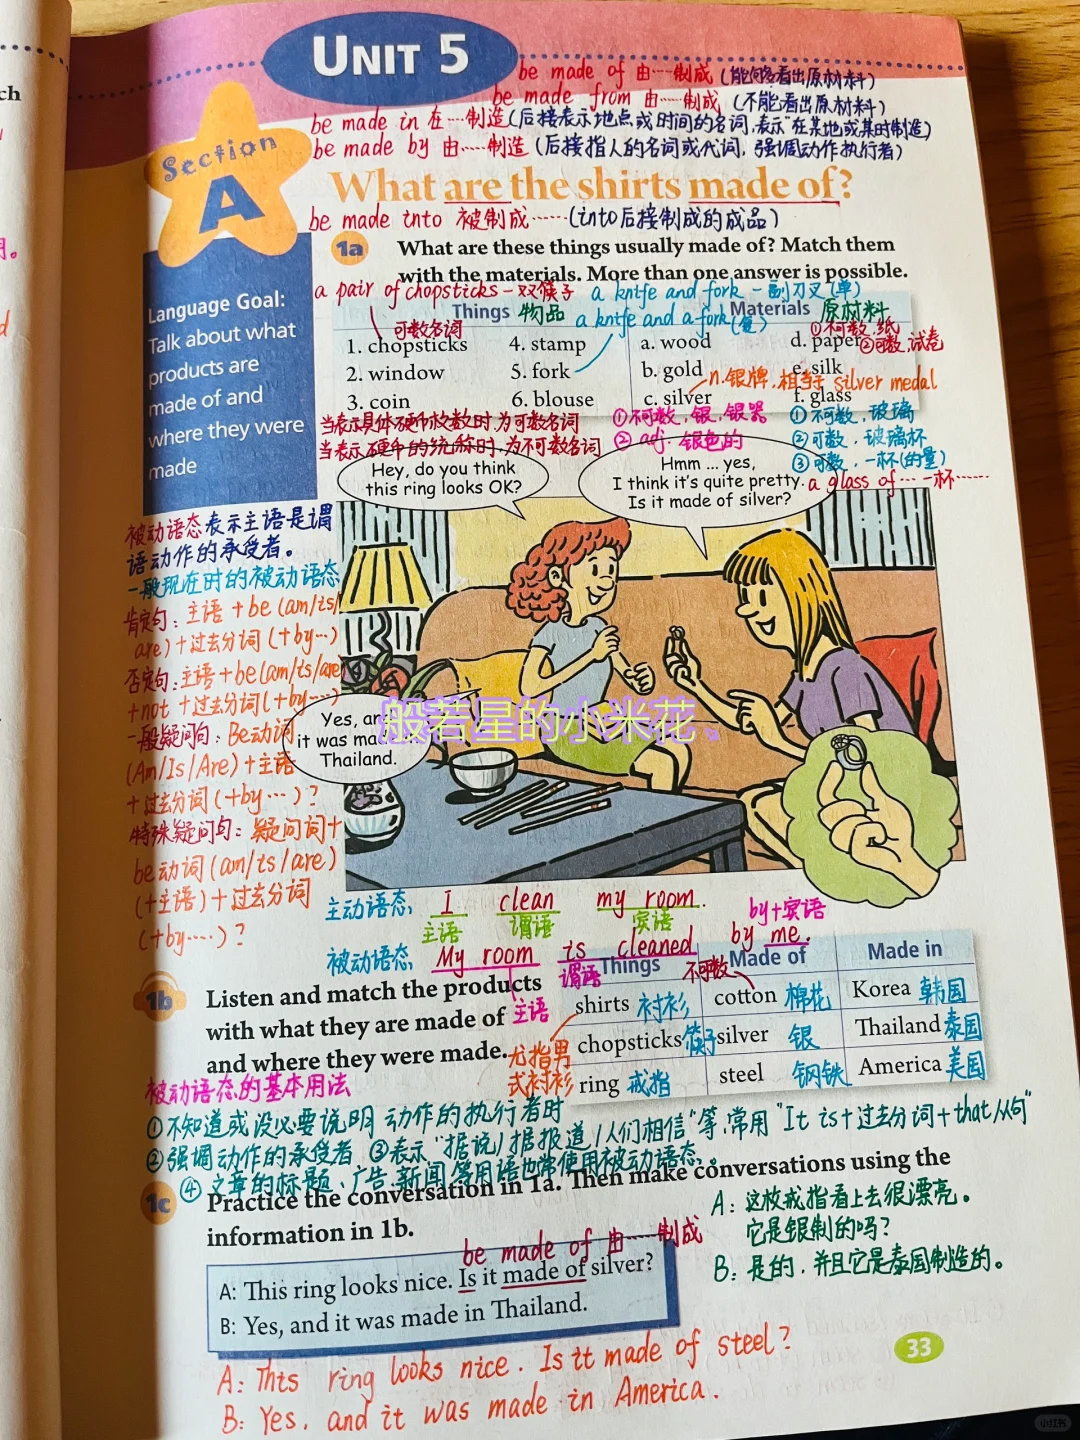 UNIT 5
be made of 由……制成 (能够看出原材料)
be made from 由……制成 (不能看出原材料)
be made in 在…制造(后接表示地点或时间的名词,表示"在某地或某时制造)
be made by 由……制造 (后接指人的名词或代词, 强调动作执行者)
Section
A
What are the shirts made of?
be made into 被制成……(into后接制成的成品)
Language Goal:
Talk about what
products are
made of and
where they were
made
1a
What are these things usually made of? Match them
with the materials. More than one answer is possible.
a pair of chopsticks 一双筷子
a knife and fork 一副刀叉(单)
a knife and a fork(复)
Things 物品
Materials 原材料
可数名词
1. chopsticks
4. stamp
a. wood
d. paper
①不可数,纸
②可数,试卷
2. window
5. fork
b. gold
e. silk
n.银牌,相当于 silver medal
3. coin
6. blouse
c. silver
f. glass
当表示具体硬币枚数时,为可数名词
当表示硬币的统称时,为不可数名词
①不可数,银,银器
②adj. 银色的
①不可数,玻璃
②可数,玻璃杯
③可数,一杯(的量)
a glass of… 一杯……
Hey, do you think
this ring looks OK?
Hmm ... yes,
I think it's quite pretty.
Is it made of silver?
被动语态表示主语是谓
语动作的承受者。
一般现在时的被动语态
肯定句: 主语 + be (am/is/
are) + 过去分词 (+by…)
否定句: 主语+be(am/is/are)
+not +过去分词(+by……)
一般疑问句: Be动词
(Am/Is/Are)+主语
+过去分词 (+by…)?
特殊疑问句: 疑问词+
be动词(am/is/are)
(+主语)+过去分词
(+by……)?
Yes, and
it was made
Thailand.
般若星的小米花、
主动语态 I clean my room.
主语 谓语 宾语
by+宾语
被动语态 My room is cleaned by me.
主语
谓语
1b
Listen and match the products
with what they are made of
and where they were made.
Things
Made of
Made in
不可数
shirts 衬衫
cotton 棉花
Korea 韩国
尤指男
式衬衫
chopsticks 筷子
silver 银
Thailand 泰国
ring 戒指
steel 钢铁
America 美国
被动语态的基本用法
①不知道或没必要说明动作的执行者时
②强调动作的承受者 ③表示"据说/据报道/人们相信"等,常用"It is+过去分词+that从句"
④文章的标题、广告、新闻等用语也常使用被动语态。
1c
Practice the conversation in 1a. Then make conversations using the
information in 1b.
be made of 由……制成
A: This ring looks nice. Is it made of silver?
B: Yes, and it was made in Thailand.
A: 这枚戒指看上去很漂亮。
它是银制的吗?
B: 是的,并且它是泰国制造的。
A: This ring looks nice. Is it made of steel?
B: Yes, and it was made in America.
33
小红书